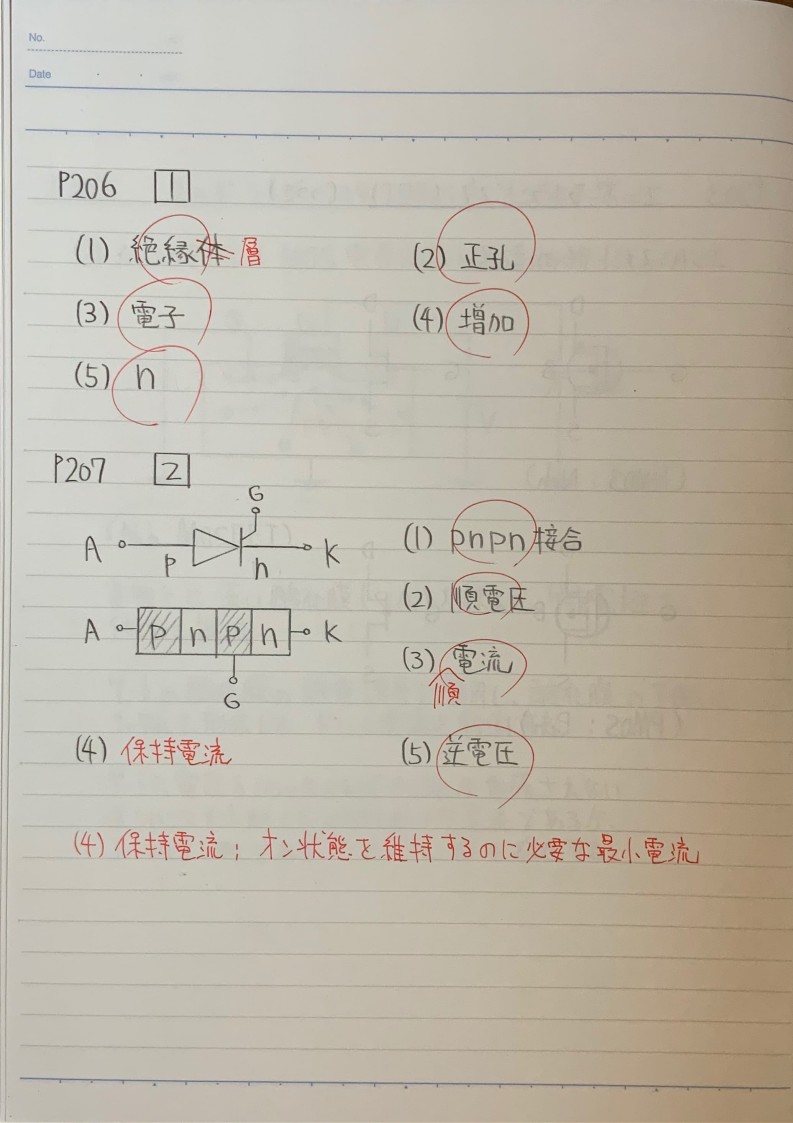 No.
Date
P206 1
(1) 絶縁体 層 (2) 正孔
(3) 電子 (4) 増加
(5) n
P207 2
G
A P n K
(1) pnpn接合
(2) 順電圧
A p n p n K
G
(3) 電流
順
(4) 保持電流 (5) 逆電圧
(4) 保持電流; オン状態を維持するのに必要な最小電流